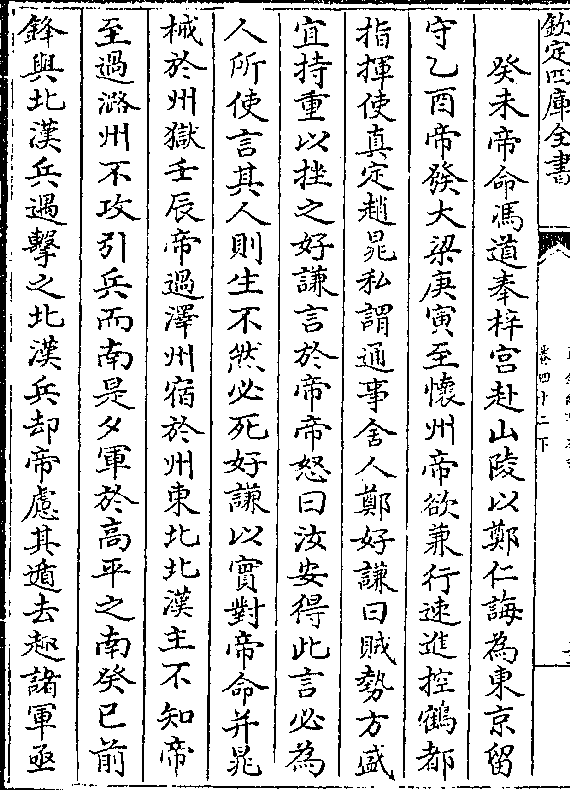 欽定四庫全書
卷四十二下
癸未帝命馮道奉梓宮赴山陵以鄭仁誨為東京留
守乙酉帝發大梁庚寅至懷州帝欲兼行速進控鶴都
指揮使真定趙晁私謂通事舍人鄭好謙曰賊勢方盛
宜持重以挫之好謙言於帝帝怒曰汝安得此言必為
人所使言其人則生不然必死好謙以實對帝命并晁
械於州獄壬辰帝過澤州宿於州東北北漢主不知帝
至過潞州不攻引兵而南是夕軍於高平之南癸巳前
鋒與北漢兵遇擊之北漢兵却帝慮其遁去趣諸軍亟